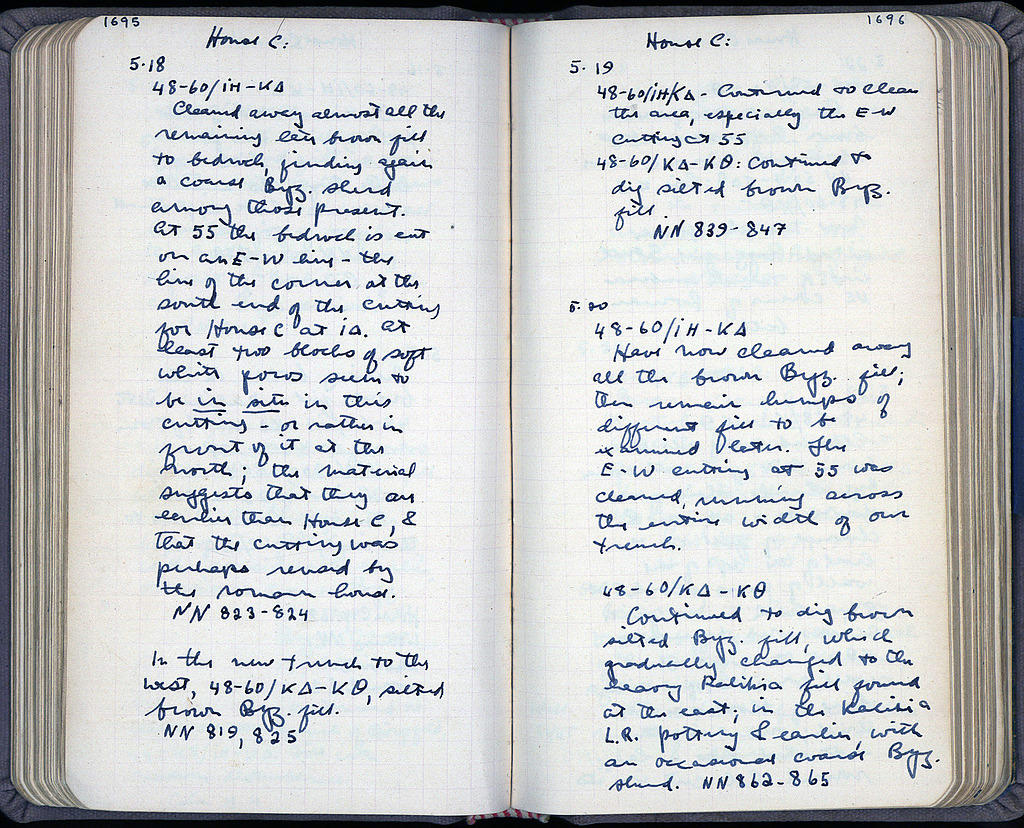 1695
House C:
5.18
48-60/ΙΗ-ΚΔ
Cleaned away almost all the
remaining late brown fill
to bedrock, finding again
a coarse Byz. sherd
among those present.
At 55 the bedrock is cut
on an E-W line - the
line of the corner at the
south end of the cutting
for House C at ΙΔ. At
least two blocks of soft
white poros seem to
be in situ in this
cutting - or rather in
front of it at the
north; the material
suggests that they are
earlier than House C, &
that the cutting was
perhaps reused by
the roman house.
NN 823-824
In the new trench to the
west, 48-60/ΚΔ-ΚΘ, silted
brown Byz. fill.
NN 819, 825
1696
House C:
5.19
48-60/ΙΗ/ΚΔ - Continued to clean
the area, especially the E-W
cutting at 55
48-60/ΚΔ-ΚΘ: Continued to
dig silted brown Byz.
fill.
NN 839-847
5.20
48-60/ΙΗ-ΚΔ
Have now cleaned away
all the brown Byz. fill;
there remain lumps of
different fill to be
examined later. The
E-W cutting at 55 was
cleaned, running across
the entire width of our
trench.
48-60/ΚΔ-ΚΘ
Continued to dig brown
silted Byz. fill, which
gradually changed to the
heavy fill found
at the east; in the
L.R. pottery & earlier, with
an occasional coarse Byz.
sherd. NN 862-865